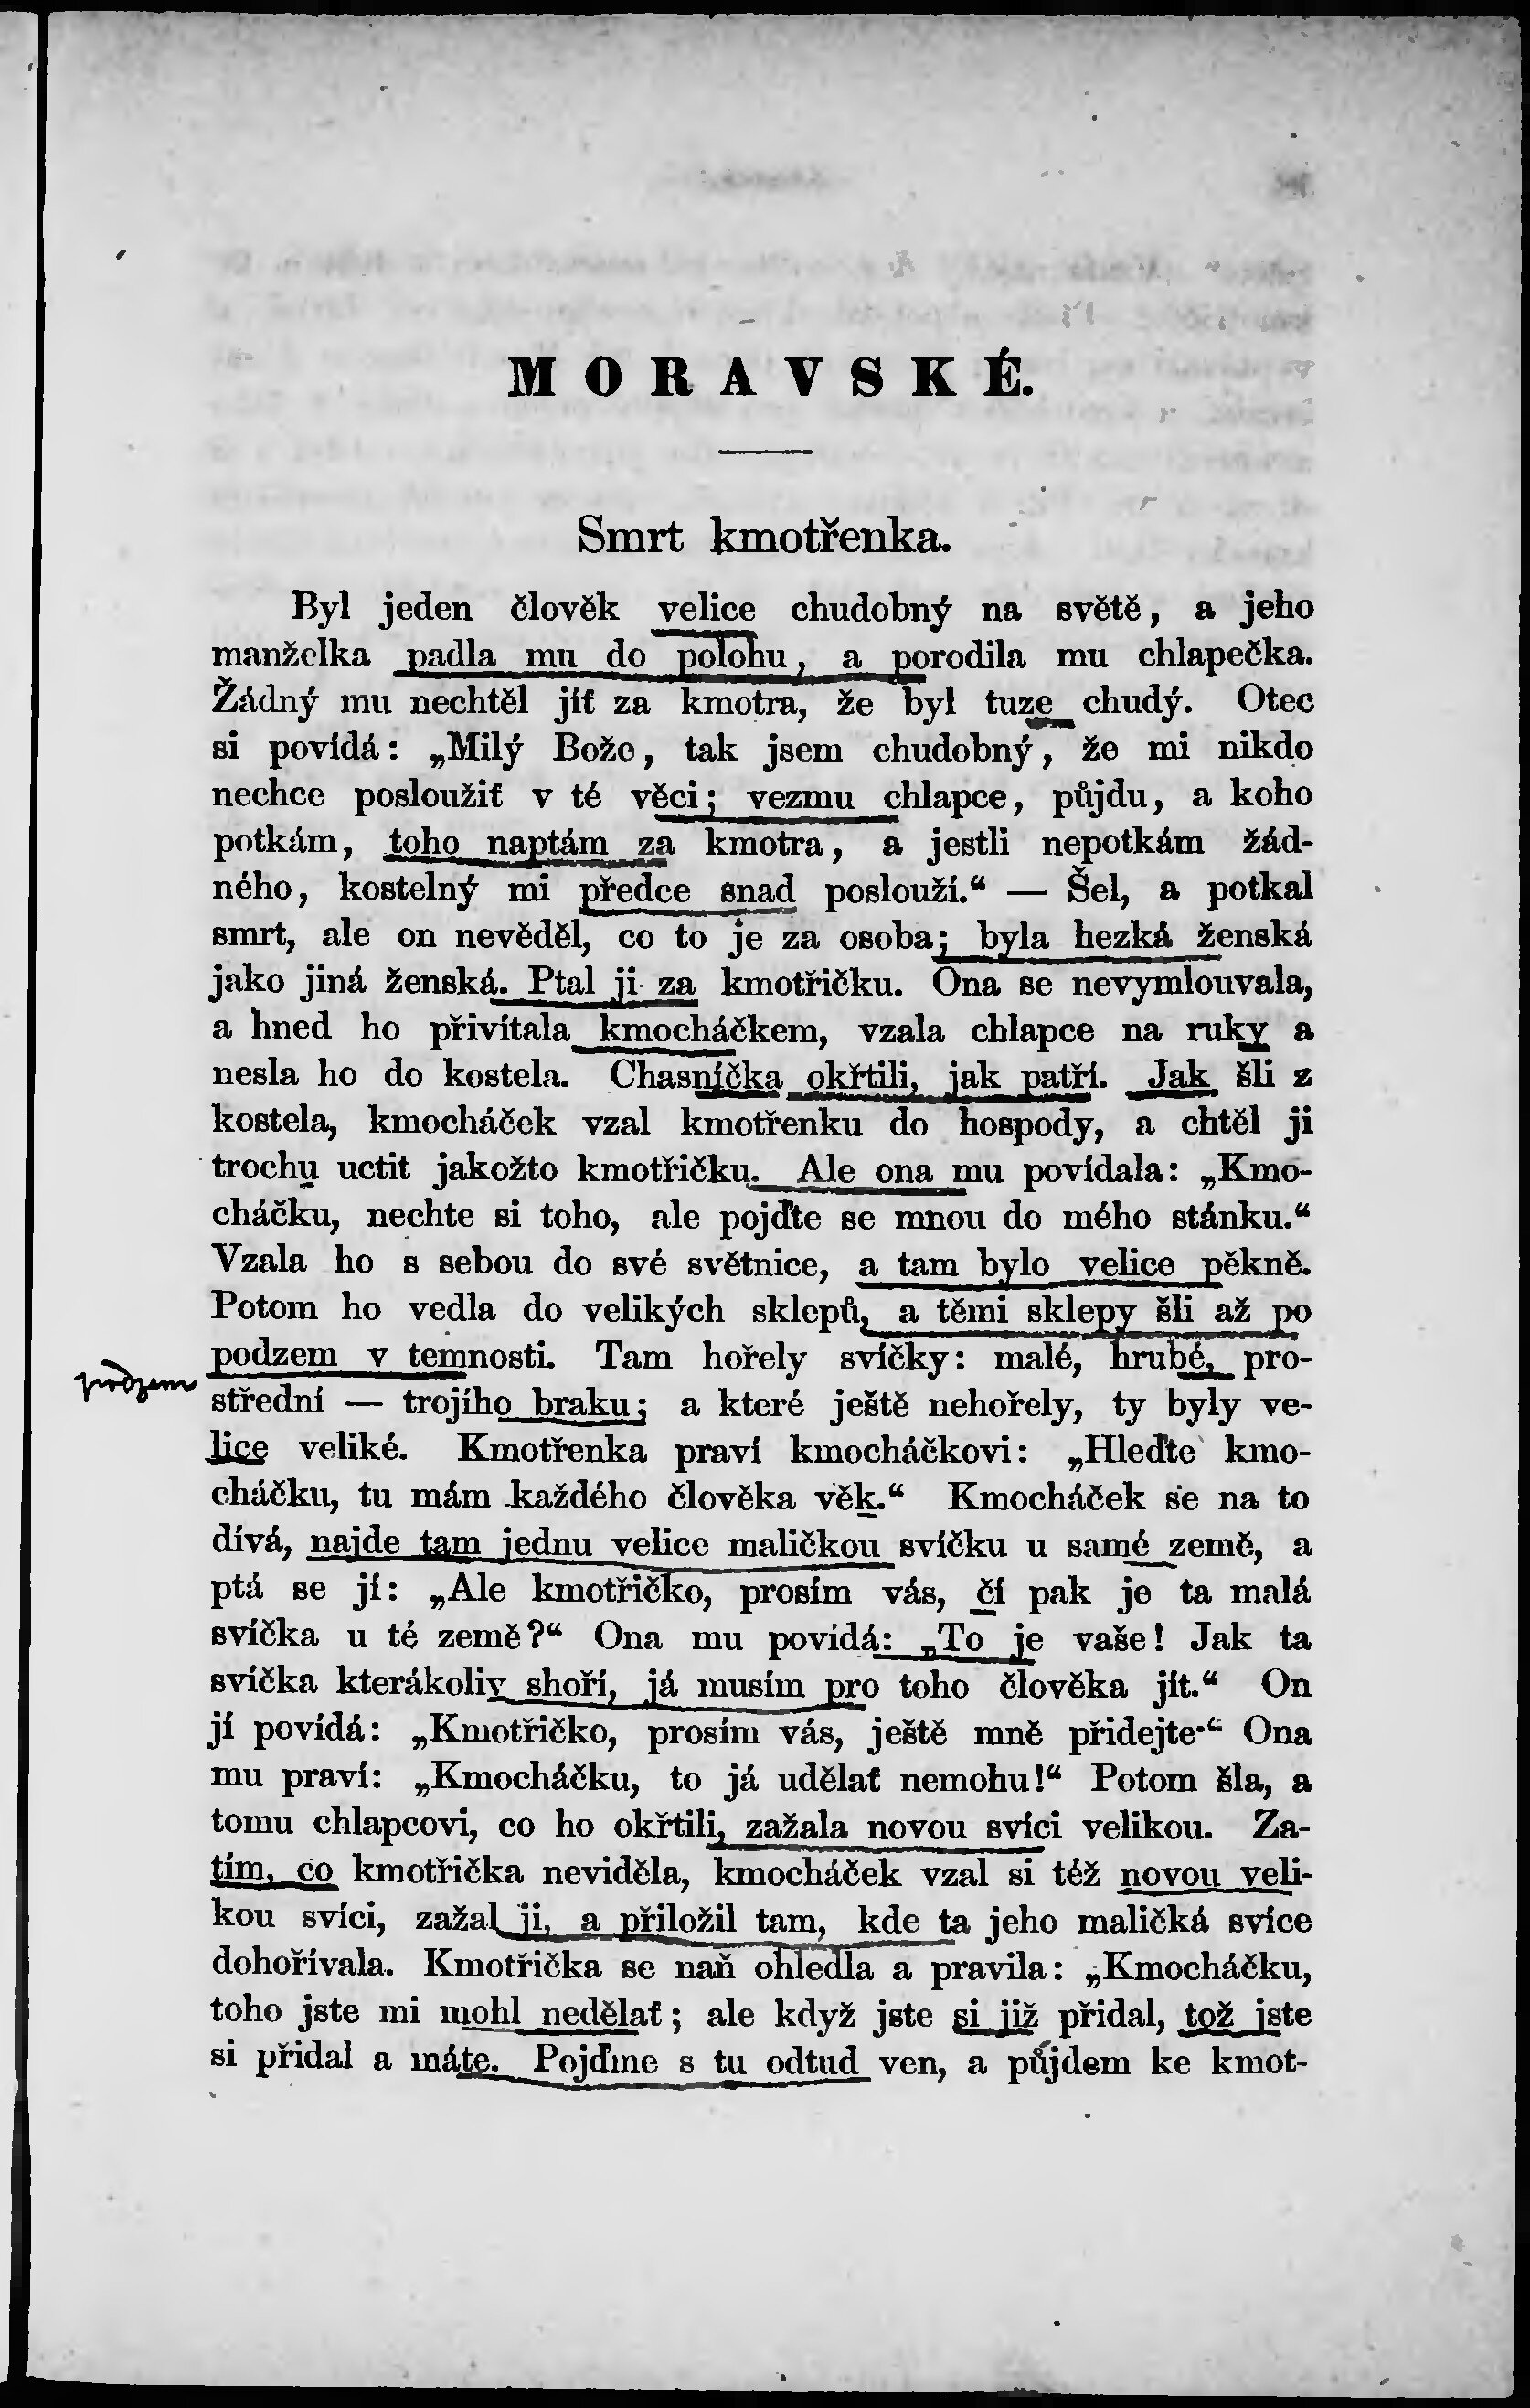 MORAVSKÉ.
Smrt kmotřenka.
Byl jeden člověk velice chudobný na světě, a jeho
manželka padla mu do polohu, a porodila mu chlapečka.
Žádný mu nechtěl jíť za kmotra, že byl tuze chudý. Otec
si povídá: „Milý Bože, tak jsem chudobný, že mi nikdo
nechce posloužiť v té věci; vezmu chlapce, půjdu, a koho
potkám, toho naptám za kmotra, a jestli nepotkám žád-
ného, kostelný mi předce snad poslouží.“ — Šel, a potkal
smrt, ale on nevěděl, co to je za osoba; byla hezká ženská
jako jiná ženská. Ptal ji za kmotřičku. Ona se nevymlouvala,
a hned ho přivítala kmocháčkem, vzala chlapce na ruky a
nesla ho do kostela. Chasníčka okřtili, jak patří. Jak šli z
kostela, kmocháček vzal kmotřenku do hospody, a chtěl ji
trochu uctit jakožto kmotřičku. Ale ona mu povídala: „Kmo-
cháčku, nechte si toho, ale pojďte se mnou do mého stánku.“
Vzala ho s sebou do své světnice, a tam bylo velice pěkně.
Potom ho vedla do velikých sklepů, a těmi sklepy šli až po
podzem v temnosti. Tam hořely svíčky: malé, hrubé, pro-
podzem
střední — trojího braku; a které ještě nehořely, ty byly ve-
lice veliké. Kmotřenka praví kmocháčkovi: „Hleďte kmo-
cháčku, tu mám každého člověka věk.“ Kmocháček se na to
dívá, najde tam jednu velice maličkou svíčku u samé země, a
ptá se jí: „Ale kmotřičko, prosím vás, čí pak je ta malá
svíčka u té země?“ Ona mu povídá: „To je vaše! Jak ta
svíčka kterákoliv shoří, já musím pro toho člověka jít.“ On
jí povídá: „Kmotřičko, prosím vás, ještě mně přidejte·“ Ona
mu praví: „Kmocháčku, to já udělať nemohu!“ Potom šla, a
tomu chlapcovi, co ho okřtili, zažala novou svíci velikou. Za-
tím, co kmotřička neviděla, kmocháček vzal si též novou veli-
kou svíci, zažal ji, a přiložil tam, kde ta jeho maličká svíce
dohořívala. Kmotřička se naň ohledla a pravila: „Kmocháčku,
toho jste mi mohl nedělať; ale když jste si již přidal, tož jste
si přidal a máte. Pojďme s tu odtud ven, a půjdem ke kmot-